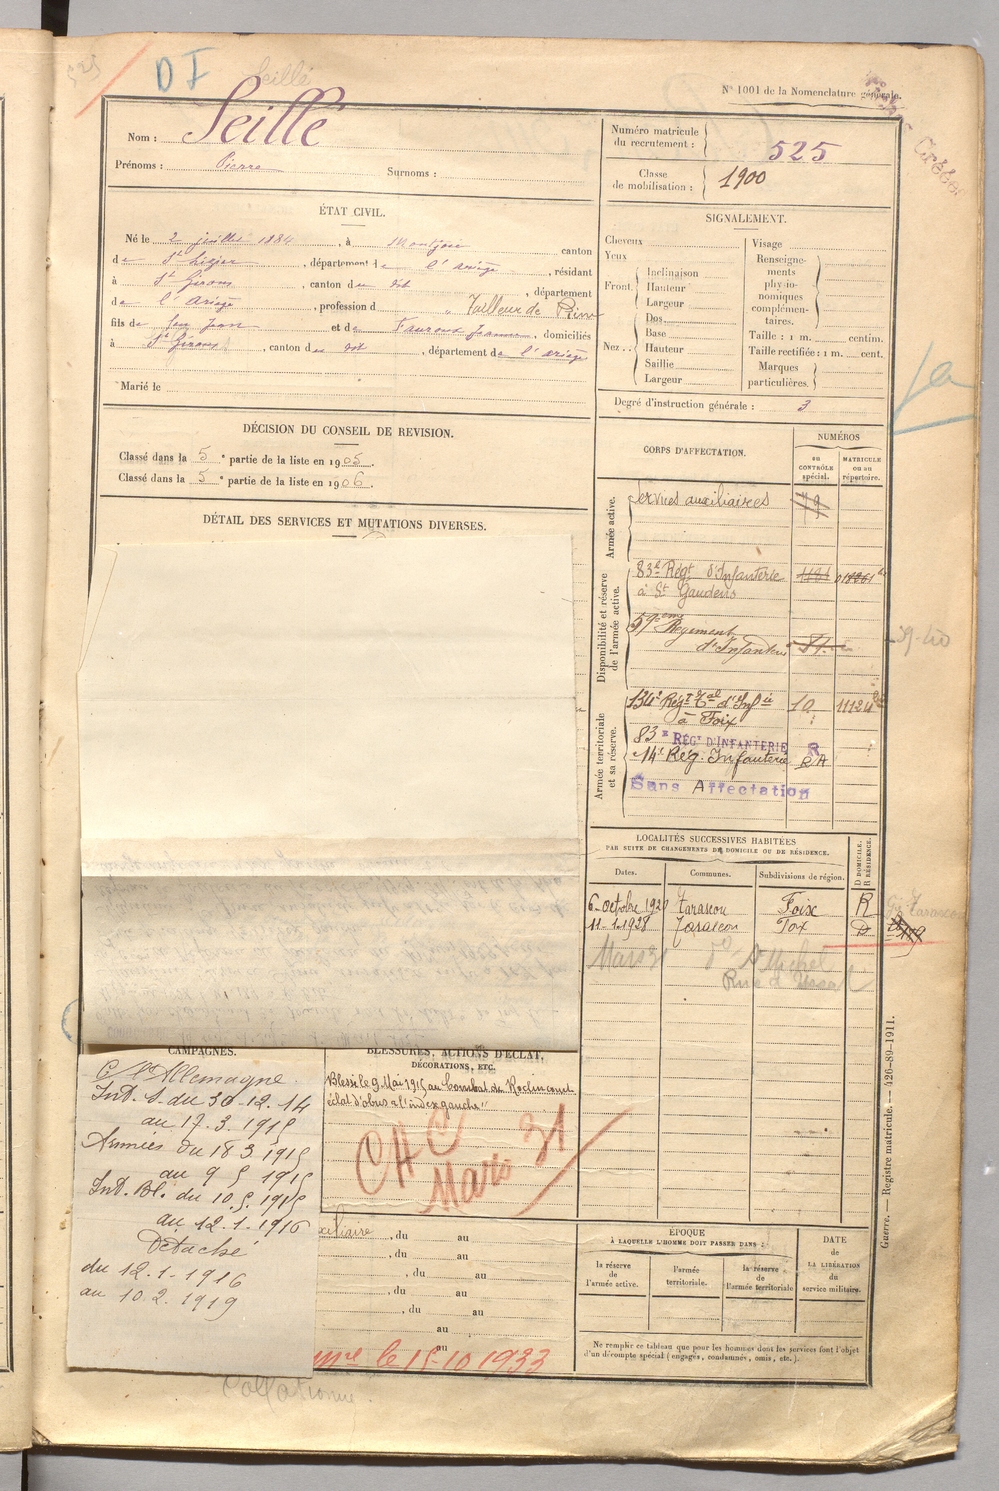 525
D I
Seillé
N° 1001 de la Nomenclature générale.
Nom : Seillé
Prénoms : Pierre Surnoms :
Numéro matricule du recrutement : 525
Classe de mobilisation : 1900
ÉTAT CIVIL.
Né le 2 juillet 1884, à Montjoie canton
de St Lizier, département de l'Ariège, résidant
à St Girons, canton du dit, département
de l'Ariège, profession d Tailleur de
fils de feu Jean et de Fauroux Jeanne, domiciliés
à St Girons, canton du dit, département de l'Ariège
Marié le
SIGNALEMENT.
Cheveux
Yeux
Front. Inclinaison
Hauteur
Largeur
Nez.. Dos
Base
Hauteur
Saillie
Largeur
Visage
Renseignements physionomiques complémentaires.
Taille : 1 m. centim.
Taille rectifiée : 1 m. cent.
Marques particulières.
Degré d'instruction générale : 3
DÉCISION DU CONSEIL DE REVISION.
Classé dans la 5e partie de la liste en 1905.
Classé dans la 5e partie de la liste en 1906.
DÉTAIL DES SERVICES ET MUTATIONS DIVERSES.
CORPS D'AFFECTATION.
NUMÉROS
au CONTRÔLE spécial.
MATRICULE ou au répertoire.
Armée active.
Services auxiliaires
Disponibilité et réserve de l'armée active.
83e Régt d'Infanterie
à St Gaudens
59ème Régiment
d'Infanterie
39-40
Armée territoriale et sa réserve.
134e Régt Tal d'Infie 10 11124
à Foix
83e RÉGT D'INFANTERIE R
14e Rég. Infanterie RA
Sans Affectation
LOCALITÉS SUCCESSIVES HABITÉES
PAR SUITE DE CHANGEMENTS DE DOMICILE OU DE RÉSIDENCE.
Dates. Communes. Subdivisions de région. D DOMICILE. R RÉSIDENCE.
6-octobre 1920 Tarascon Foix R
11-1-1928 Tarascon Foix D
Mars 31 do St Michel
Rue d'Ussat
CAMPAGNES.
C. Allemagne
Int. S. du 30-12-14
au 17.3.1915
Armées du 18 3 1915
au 9 5 1915
Int. Bl. du 10.5.1915
au 12.1.1916
Détaché
du 12.1.1916
au 10.2.1919
BLESSURES, ACTIONS D'ÉCLAT,
DÉCORATIONS, ETC.
Blessé le 9 Mai 1915 au Combat de Roclincourt
éclat d'obus "à l'index gauche"
CHC
Mars 31
xiliaire, du au
, du au
, du au
, du au
, du au
au
au
le 15-10 1933
ÉPOQUE
À LAQUELLE L'HOMME DOIT PASSER DANS :
la réserve de l'armée active.
l'armée territoriale.
la réserve de l'armée territoriale
DATE de LA LIBÉRATION du service militaire.
Ne remplir ce tableau que pour les hommes dont les services font l'objet
d'un décompte spécial (engagés, condamnés, omis, etc.).
Guerre. — Registre matricule. — 426-89-1911.
Collationné